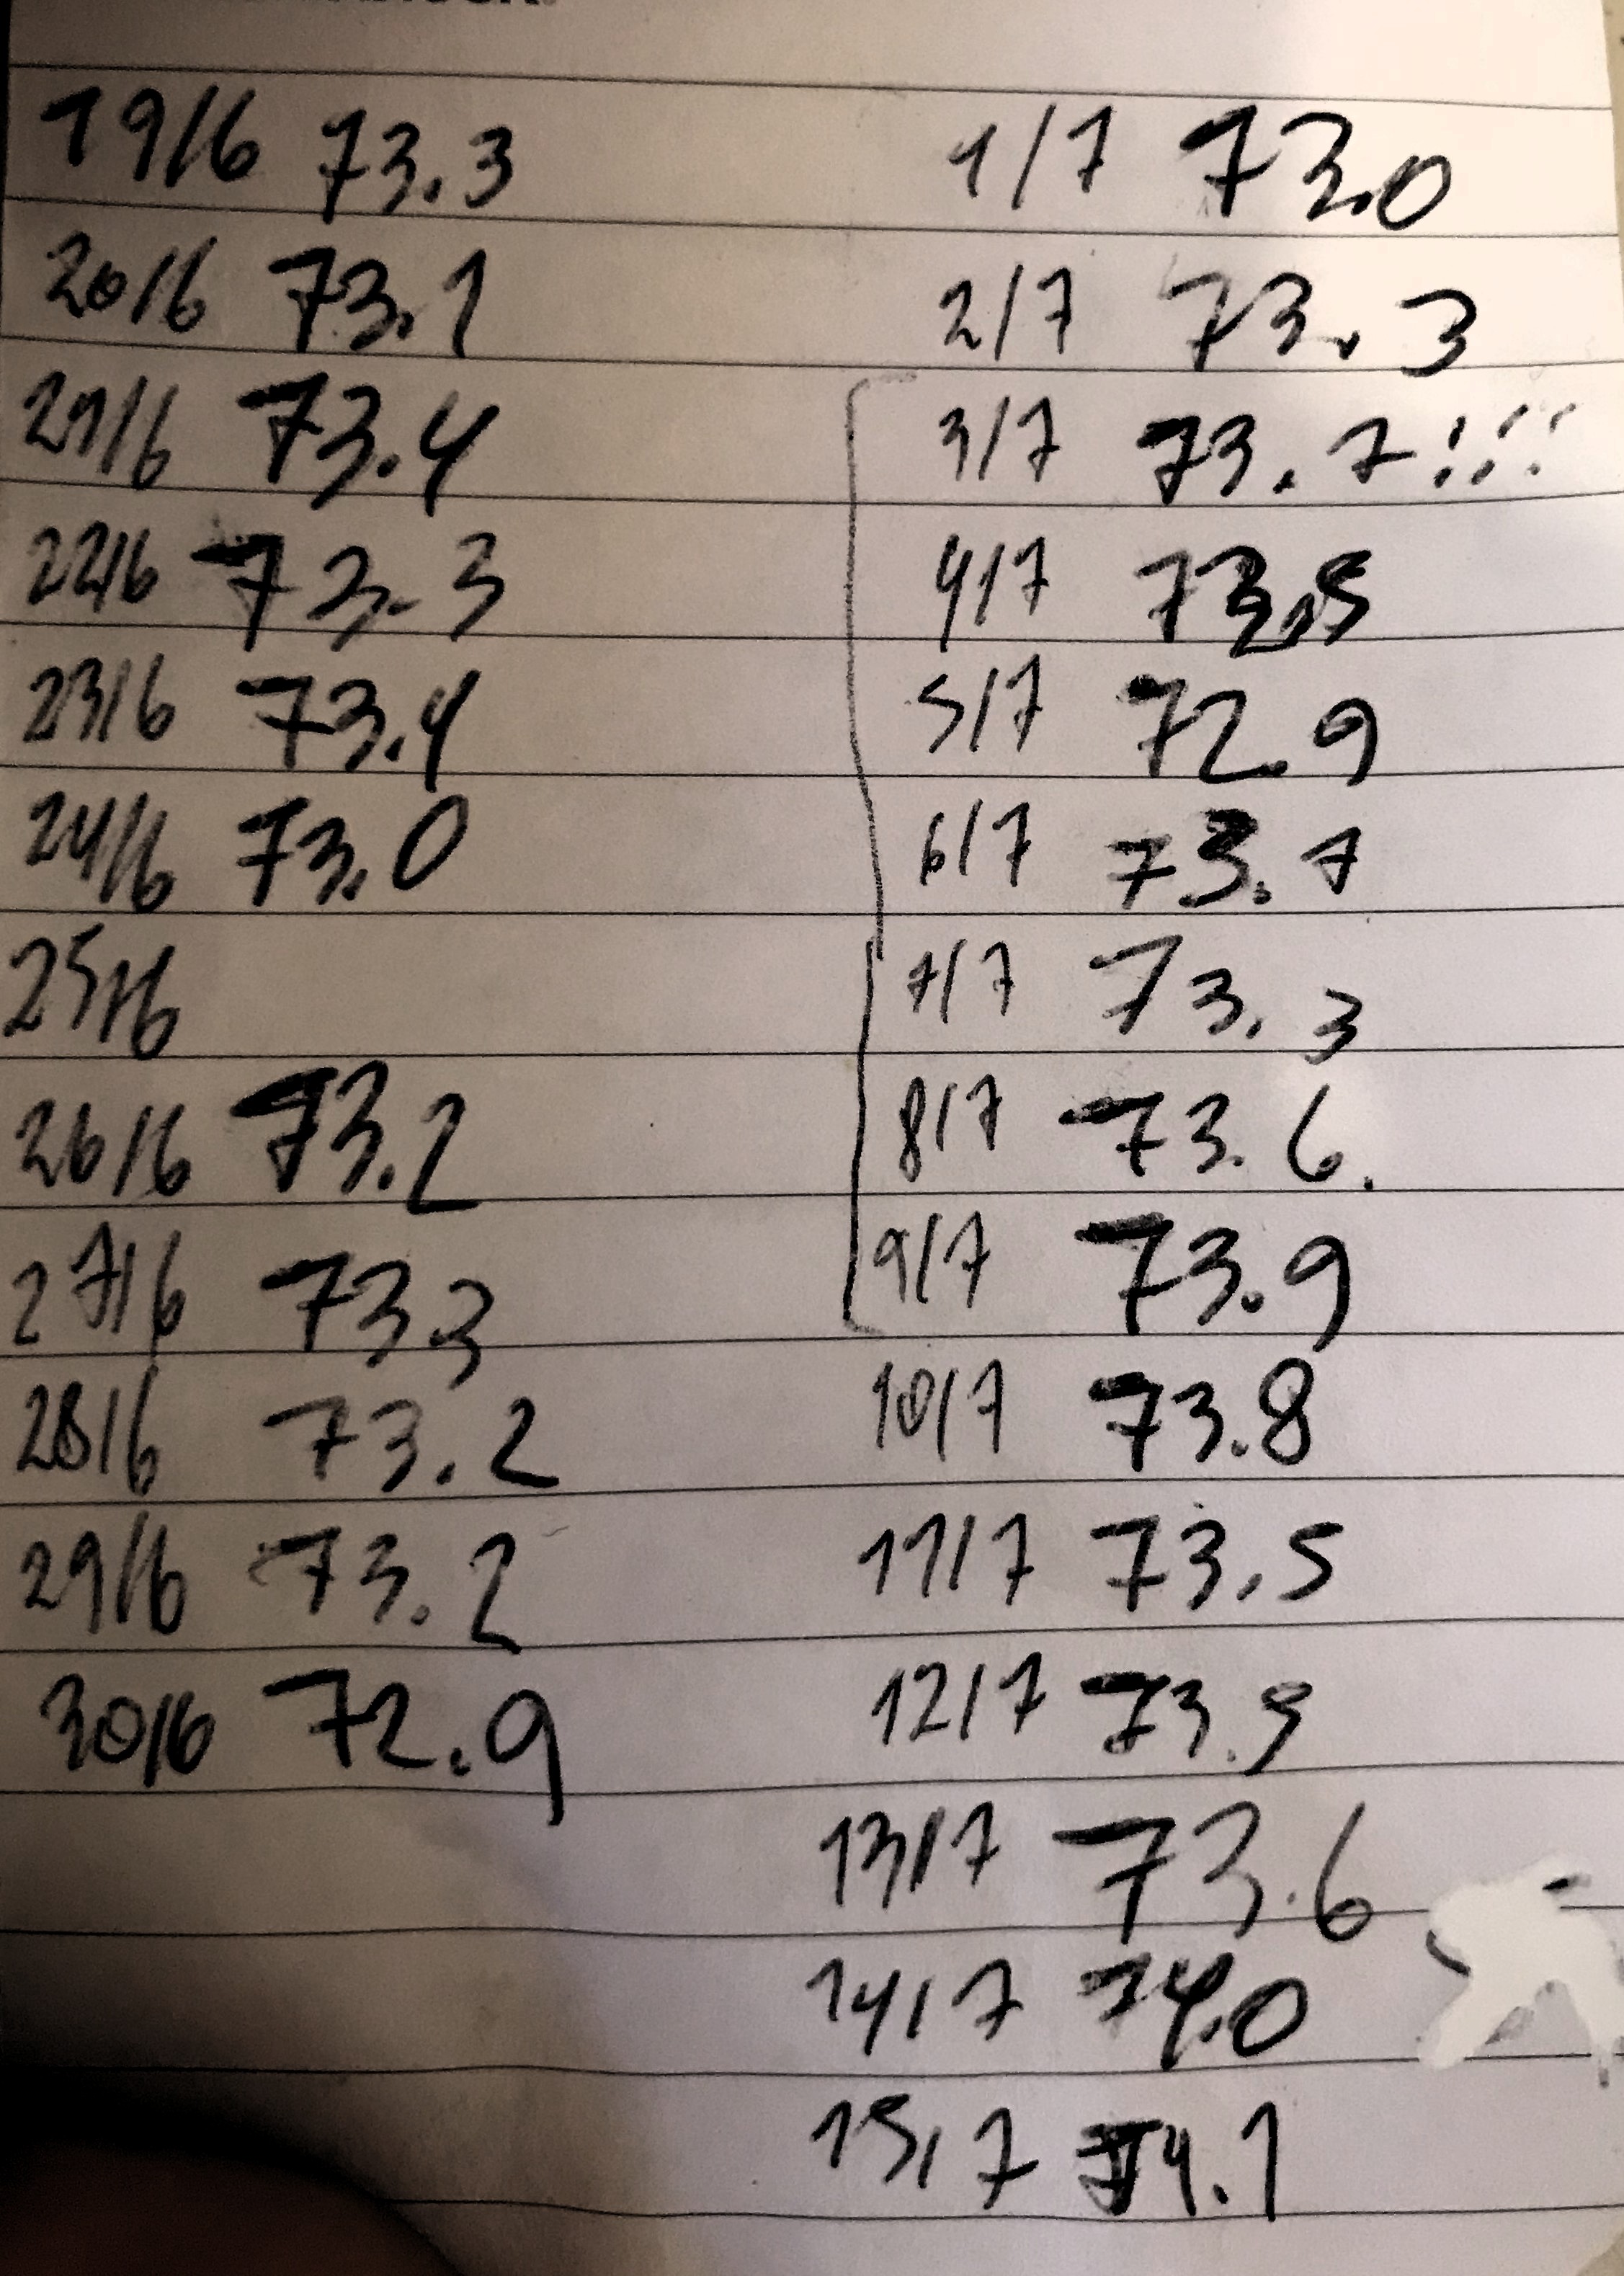 19/6 73.3
20/6 73.1
21/6 73.4
22/6 73.3
23/6 73.4
24/6 73.0
25/6
26/6 73.2
27/6 73.3
28/6 73.2
29/6 73.2
30/6 72.9
1/7 73.0
2/7 73.3
3/7 73.7!!!
4/7 73.5
5/7 72.9
6/7 73.7
7/7 73.3
8/7 73.6.
9/7 73.9
10/7 73.8
11/7 73.5
12/7
13/7 73.6
14/7 74.0
15/7 74.1